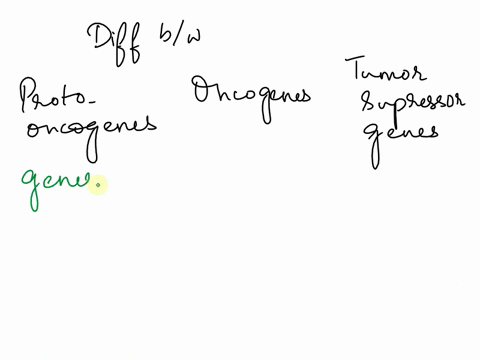 Diff b/w
Proto-
oncogenes
Oncogenes
Tumor
Supressor
genes
genes